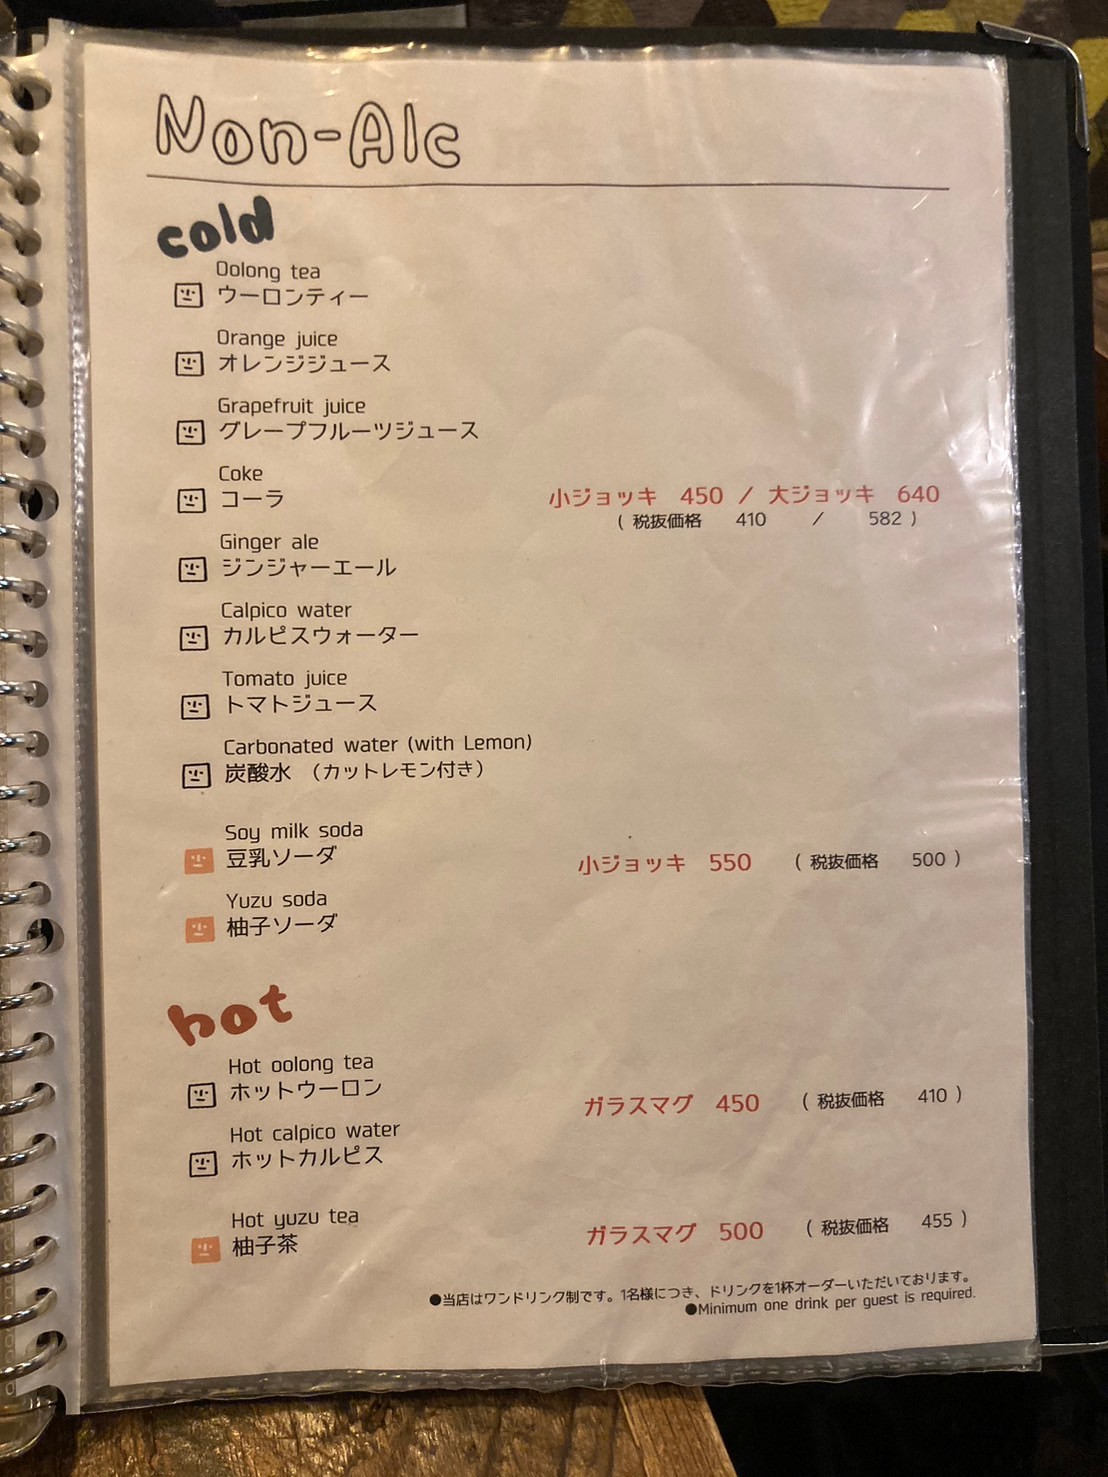 Non-Alc
cold
Oolong tea
ウーロンティー
Orange juice
オレンジジュース
Grapefruit juice
グレープフルーツジュース
Coke
コーラ
小ジョッキ 450 / 大ジョッキ 640
( 税抜価格 410 / 582 )
Ginger ale
ジンジャーエール
Calpico water
カルピスウォーター
Tomato juice
トマトジュース
Carbonated water (with Lemon)
炭酸水 （カットレモン付き）
Soy milk soda
豆乳ソーダ
小ジョッキ 550 ( 税抜価格 500 )
Yuzu soda
柚子ソーダ
hot
Hot oolong tea
ホットウーロン
ガラスマグ 450 ( 税抜価格 410 )
Hot calpico water
ホットカルピス
Hot yuzu tea
柚子茶
ガラスマグ 500 ( 税抜価格 455 )
●当店はワンドリンク制です。1名様につき、ドリンクを1杯オーダーいただいております。
●Minimum one drink per guest is required.